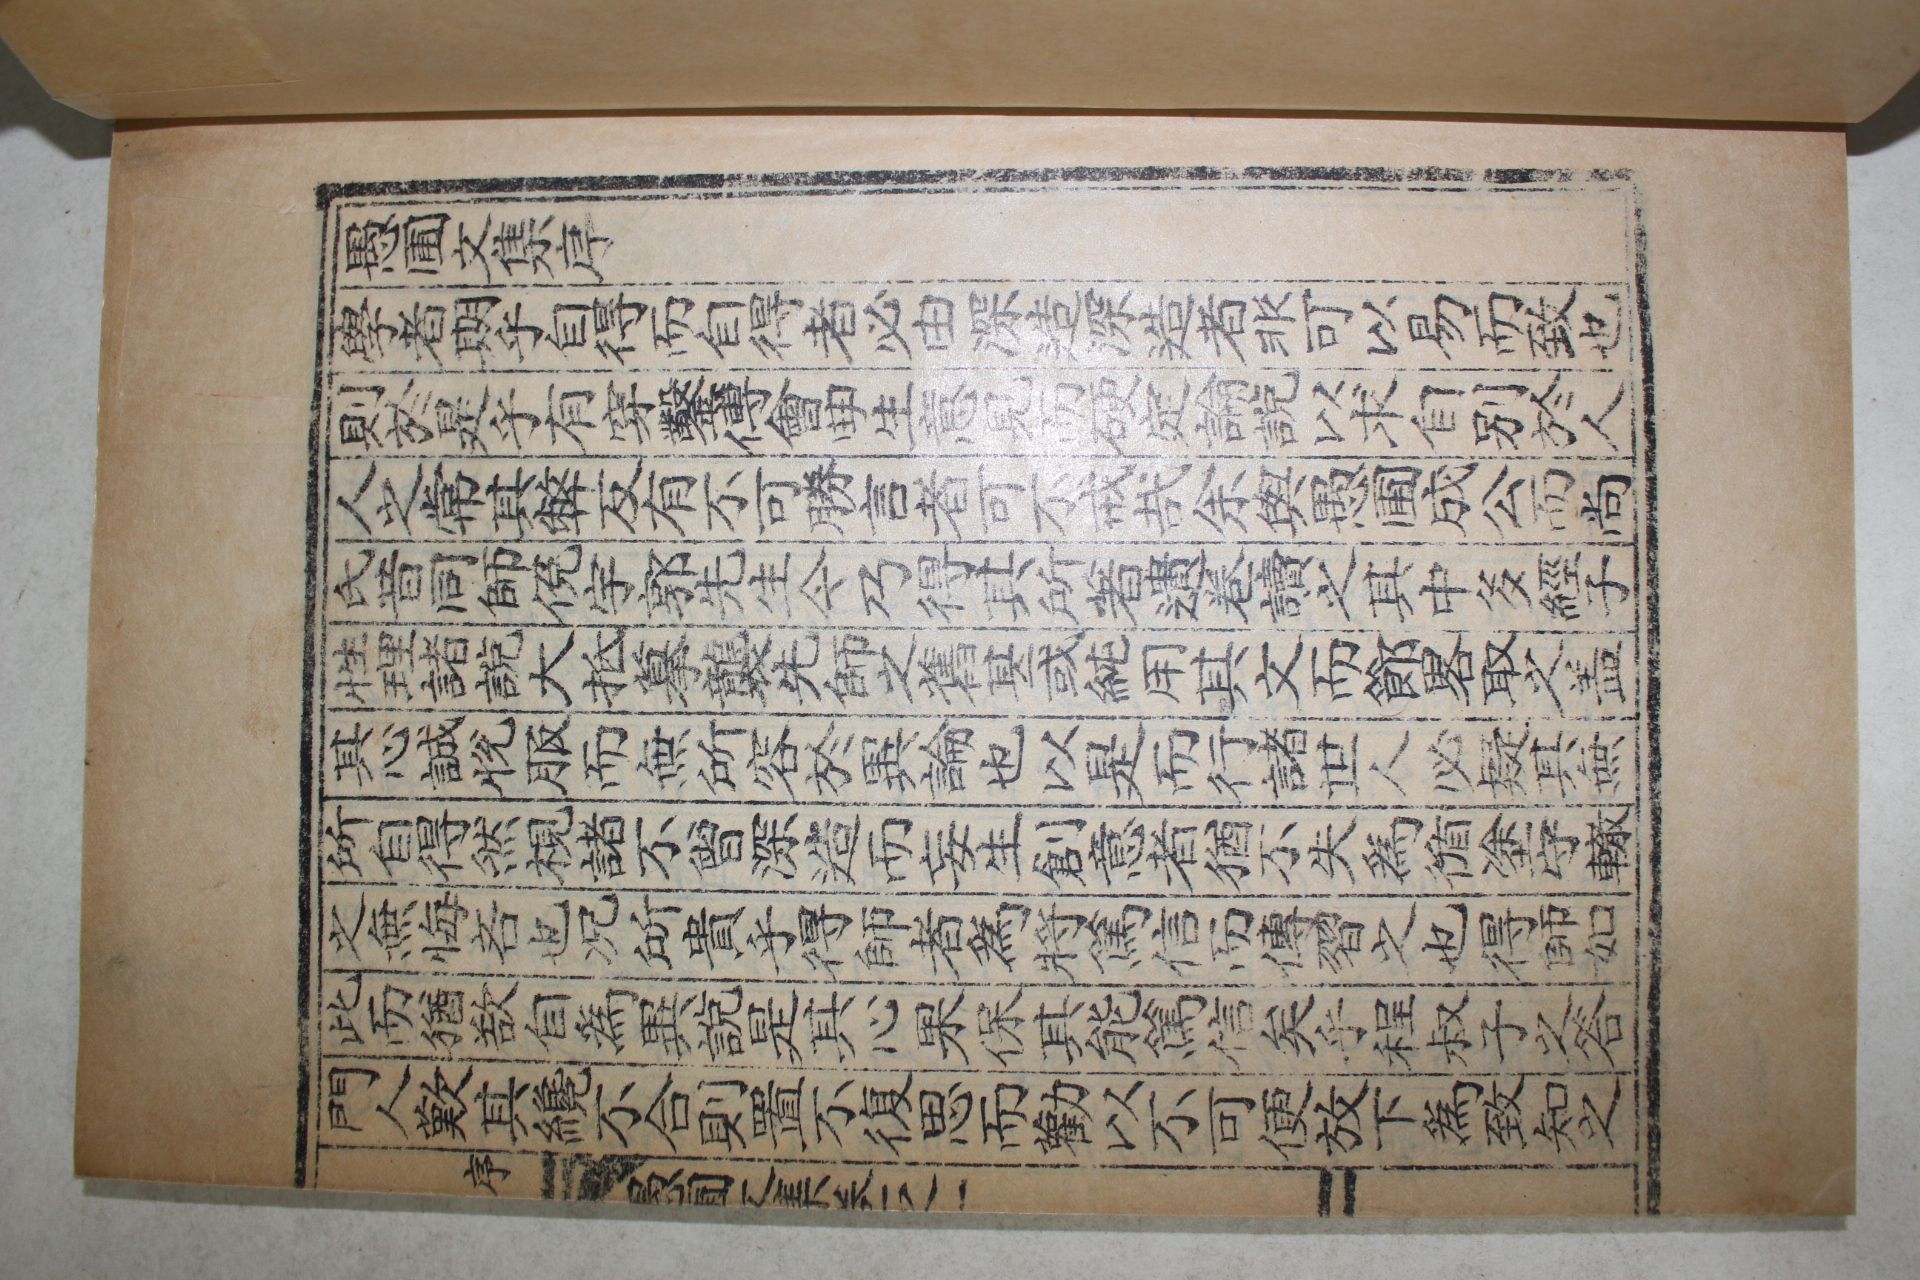 愚圃文集序
學者期乎自得而自得者必由深造深造者非可以易而致也
則於是乎有穿鑿傅會毋生意見而硬定論說以求自別於人
人之常其弊反有不可勝言者可不戒哉余與愚圃成公而尚
氏昔同師俛宇郭先生今乃得其所著遺卷讀之其中多經子
性理諸說大抵摹襲先師之舊其或純用其文而節畧取之盖
其心誠悅服而無所容於異論也以是而行諸世人必擬其無
所自得然視諸不曾深造而妄生創意者猶不失爲循塗守轍
之無悔吝也况所貴乎得師者爲將篤信而傳習之也得師如
此而猶欲自爲異說是其心果保其能篤信矣乎程叔子之答
門人歎其纔不合則置不復思而勸以不可便放下爲致知之
序
愚圃文集卷之一